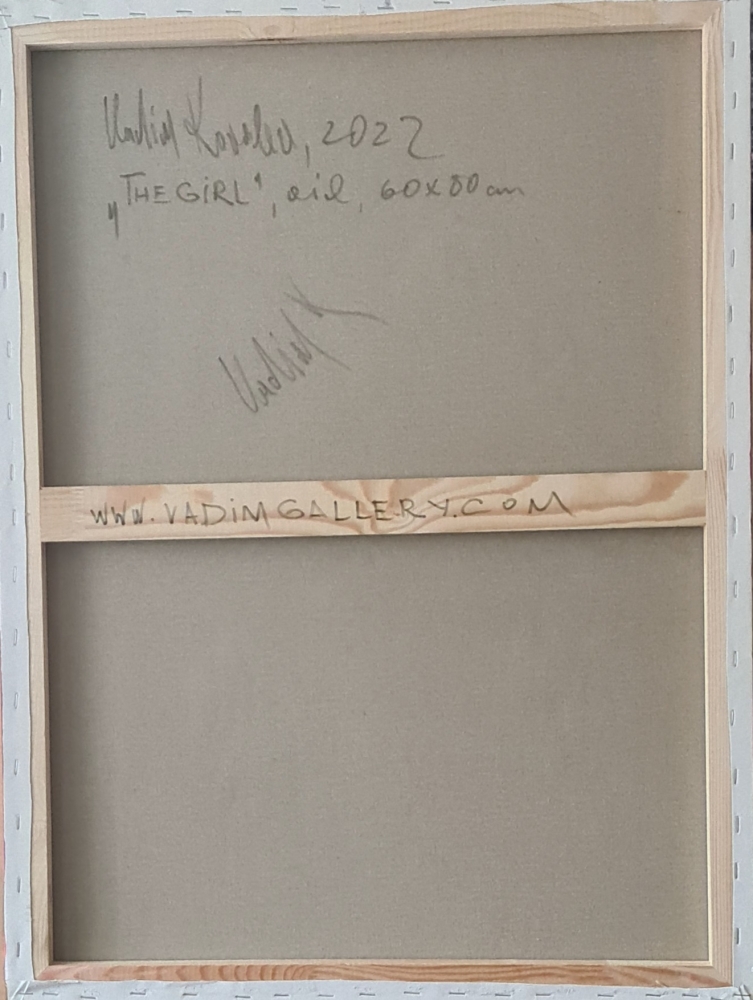 Vadim Kovalev, 2022
„THE GiRL", oil, 60x80 cm
Vadim
www.VADiMGALLERY.COM